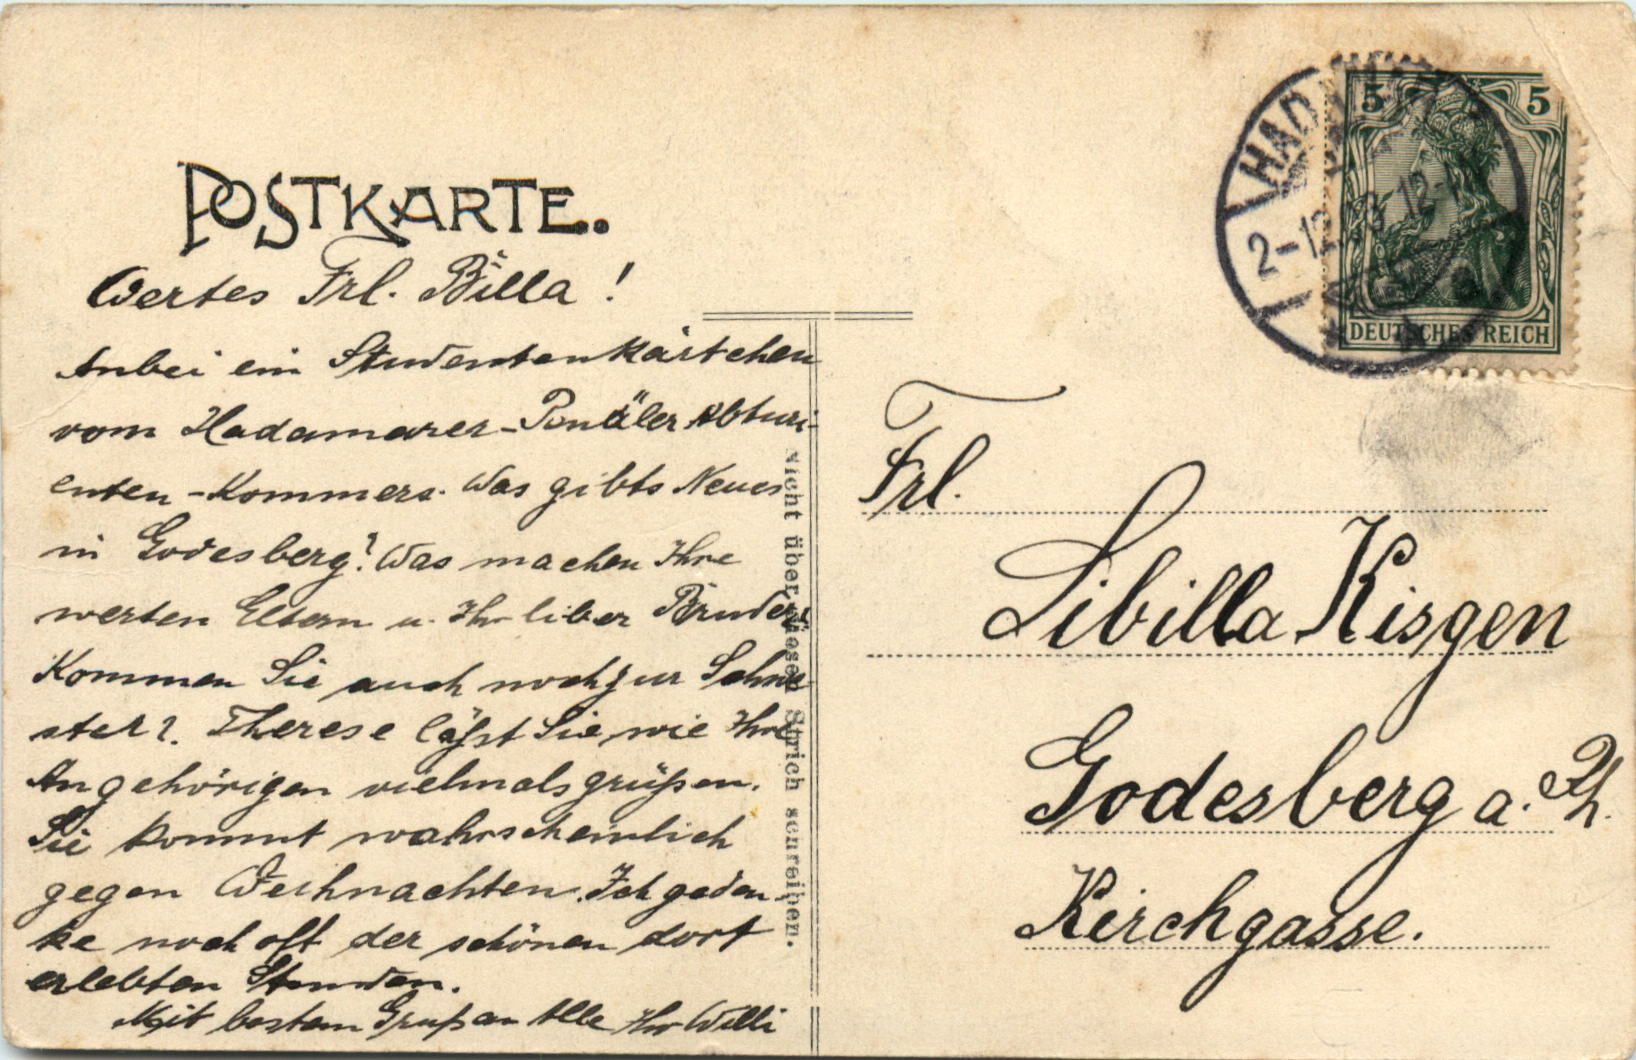 POSTKARTE.
Wertes Frl. Billa!
Anbei ein Studentenkärtchen
vom Hadamarer-Penäler Abturi-
enten-Kommers. Was gibts Neues
in Godesberg? Was machen Ihre
werten Eltern u. Ihr liber Bruder?
Kommen Sie auch noch zur Schwe-
ster?. Therese läßt Sie, wie Ihre
Angehörigen vielmals grüßen.
Sie kommt wahrscheinlich
gegen Weihnachten. Ich geden-
ke noch oft der schönen dort
erlebten Stunden.
Mit bestem Gruß an Alle Ihr Willi
Nicht über diesen Strich schreiben.
5 5
DEUTSCHES REICH
HADAMAR
2-12
Frl.
Libilla Kisgen
Godesberg a. Rh.
Kirchgasse.